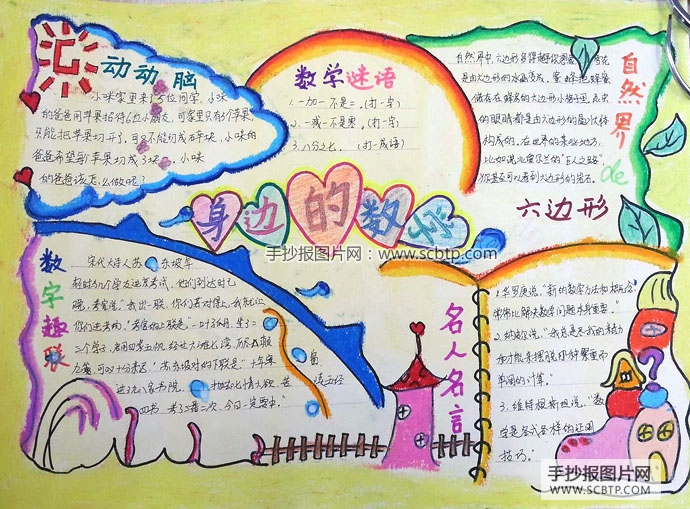 动动脑
小咪家里来了5位同学,小咪
的爸爸用苹果招待6位小朋友,可家里只有5个苹果
只能把苹果切开了,可又不能切成碎块,小咪的
爸爸希望每个苹果切成3块。小咪
的爸爸该怎么做呢?
数学谜语
1.一加一不是二。(打一字)
2.一减一不是零。(打一字)
3.八分之七。(打一成语)
自然界de
六边形
自然界中,六边形
是由六边形的水晶
六边形的
的眼睛都是由六边形的
构成的,在世界的某些地方,
比如说北爱尔兰的“巨人之路”
你甚至可以看到六边形的岩石。
身边的数学
手抄报图片网:www.scbtp.com
数字趣联
宋代大诗人苏东坡年
轻时与几个学友进京考试,他们到达时
“我出一联,你们若对得上,我就让
你们进考场。”考官的上联是:一叶孤舟,坐了二
三个学子,启用四桨五帆,经过六滩七湾,历尽八颠
九簸,可叹十分来迟。苏东坡对的下联是:十年寒
窗,进了九八家书院,抛却七情六欲,苦读五经
四书,考了三番二次,今日一定要中。
名人名言
1.华罗庚说:“新的数学方法和概念,
常常比解决数学问题本身更重要。”
2.纳皮尔说:“我总是尽我的精力
和才能来摆脱那种繁重而
单调的计算。”
3.维特根斯坦说:“数
学是各式各样的证明
技巧。”
手抄报图片网
WWW.SCBTP.COM